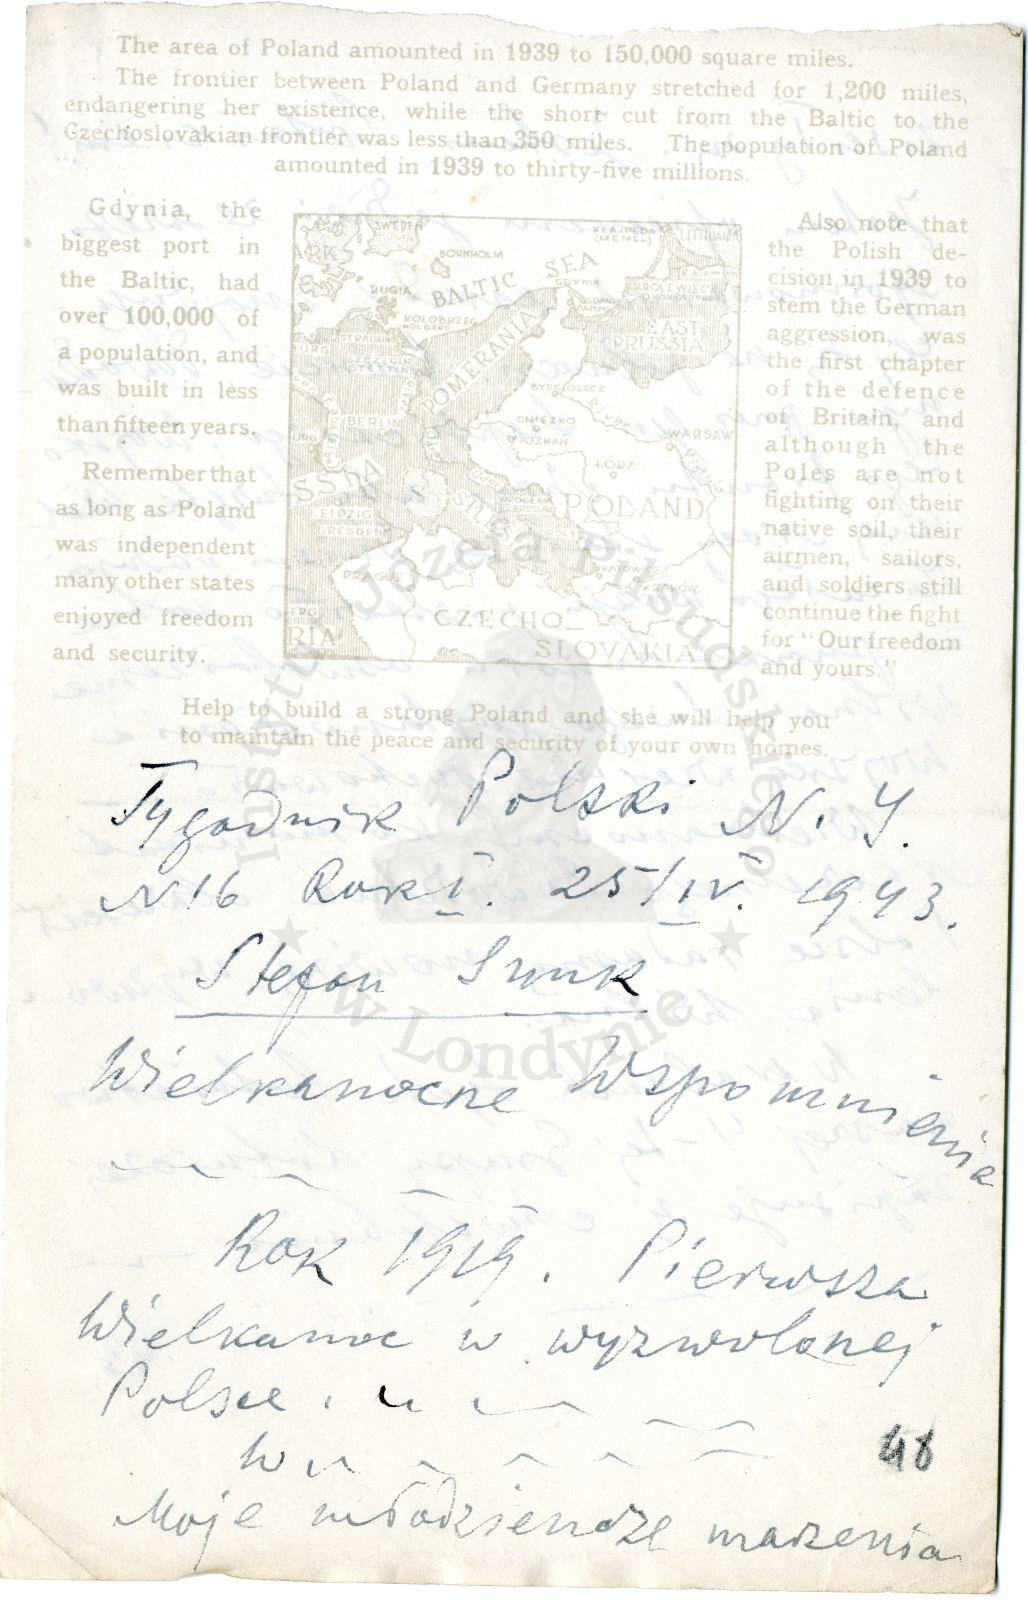 The area of Poland amounted in 1939 to 150,000 square miles.
The frontier between Poland and Germany stretched for 1,200 miles,
endangering her existence, while the short cut from the Baltic to the
Czechoslovakian frontier was less than 350 miles. The population of Poland
amounted in 1939 to thirty-five millions.
Gdynia, the
biggest port in
the Baltic, had
over 100,000 of
a population, and
was built in less
than fifteen years.
Remember that
as long as Poland
was independent
many other states
enjoyed freedom
and security.
SWEDEN
KLAJPEDA
(MEMEL)
LITHUANIA
BORNHOLM
BALTIC SEA
RUGIA
GDYNIA
KROLEWIEC
KOLOBRZEG
KOLBERG
EAST
PRUSSIA
POMERANIA
BYDGOSZCZ
BERLIN
GNIEZNO
POZNAN
WARSAW
LODZ
POLAND
LEIPZIG
DRESDEN
PRAGUE
KATOWICE
KRAKOW
CZECHO_
SLOVAKIA
Also note that
the Polish de-
cision in 1939 to
stem the German
aggression, was
the first chapter
of the defence
of Britain, and
although the
Poles are not
fighting on their
native soil, their
airmen, sailors,
and soldiers still
continue the fight
for "Our freedom
and yours."
Help to build a strong Poland and she will help you
to maintain the peace and security of your own homes.
Instytut Józefa Piłsudskiego
w Londynie
Tygodnik Polski N. Y.
N16 Rok I. 25/IV. 1943.
Stefan
Wielkanocne Wspomnienia
Rok 1919. Pierwsza
Wielkanoc w wyzwolonej
Polsce.
W
48
Moje młodzieńcze marzenia